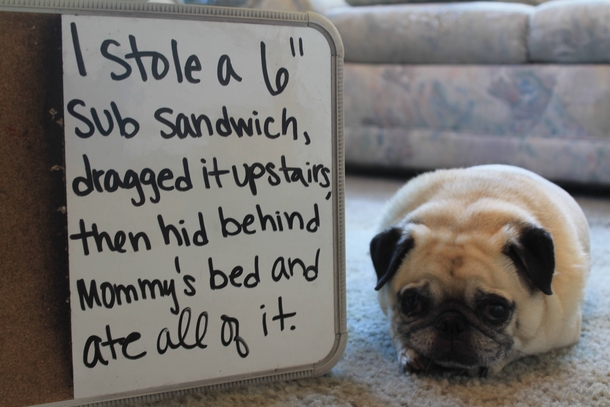 I stole a 6"
sub sandwich,
dragged it upstairs,
then hid behind
Mommy's bed and
ate all of it.